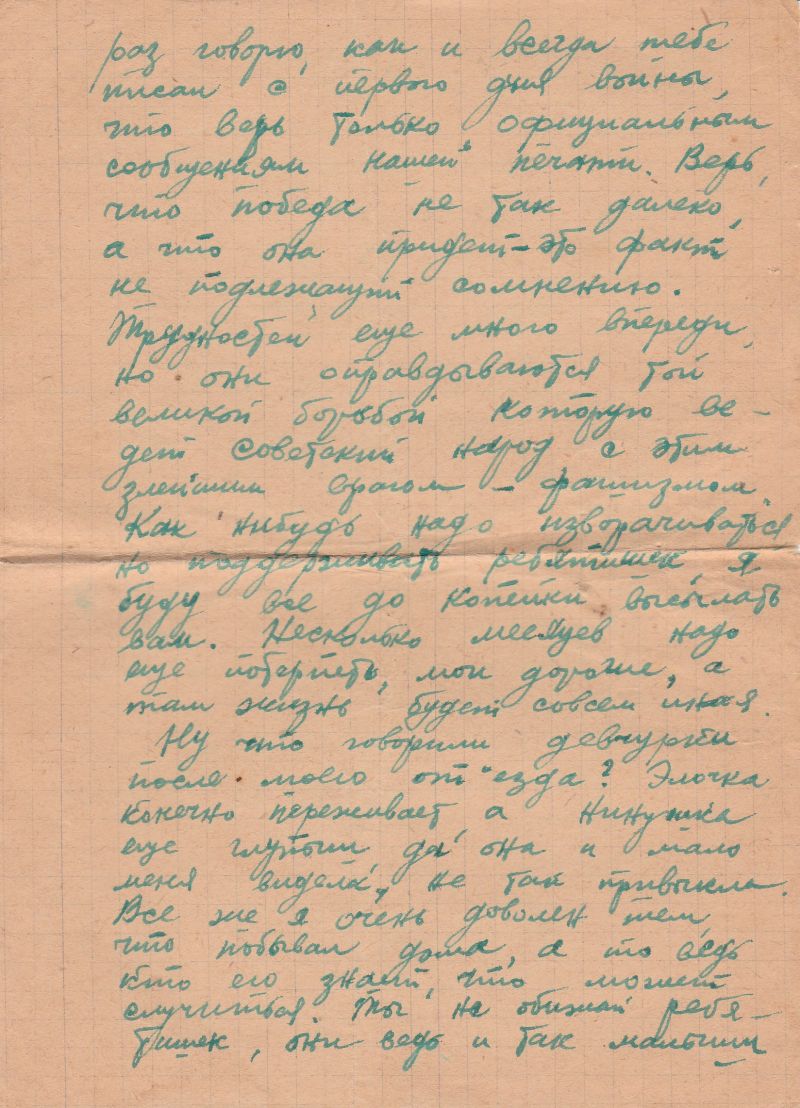 раз говорю, как и всегда тебе
писал с первого дня войны,
что верь только официальным
сообщениям нашей печати. Верь,
что победа не так далеко,
а что она придет – это факт
не подлежащий сомнению.
Трудностей еще много впереди,
но они оправдываются той
великой борьбой которую ве-
дет советский народ с этим
злейшим врагом – фашизмом.
Как нибудь надо изворачиваться
но поддерживать ребятишек, я
буду все до копейки высылать
вам. Несколько месяцев надо
еще потерпеть, мои дорогие, а
там жизнь будет совсем иная.
Ну что говорили девчурки
после моего от"езда? Элочка
конечно переживает, а Нинушка
еще глупыш, да она и мало
меня видела, не так привыкла.
Все же я очень доволен тем,
что побывал дома, а то ведь
кто его знает, что может
случиться. Ты не обижай ребя-
тишек, они ведь и так малыши